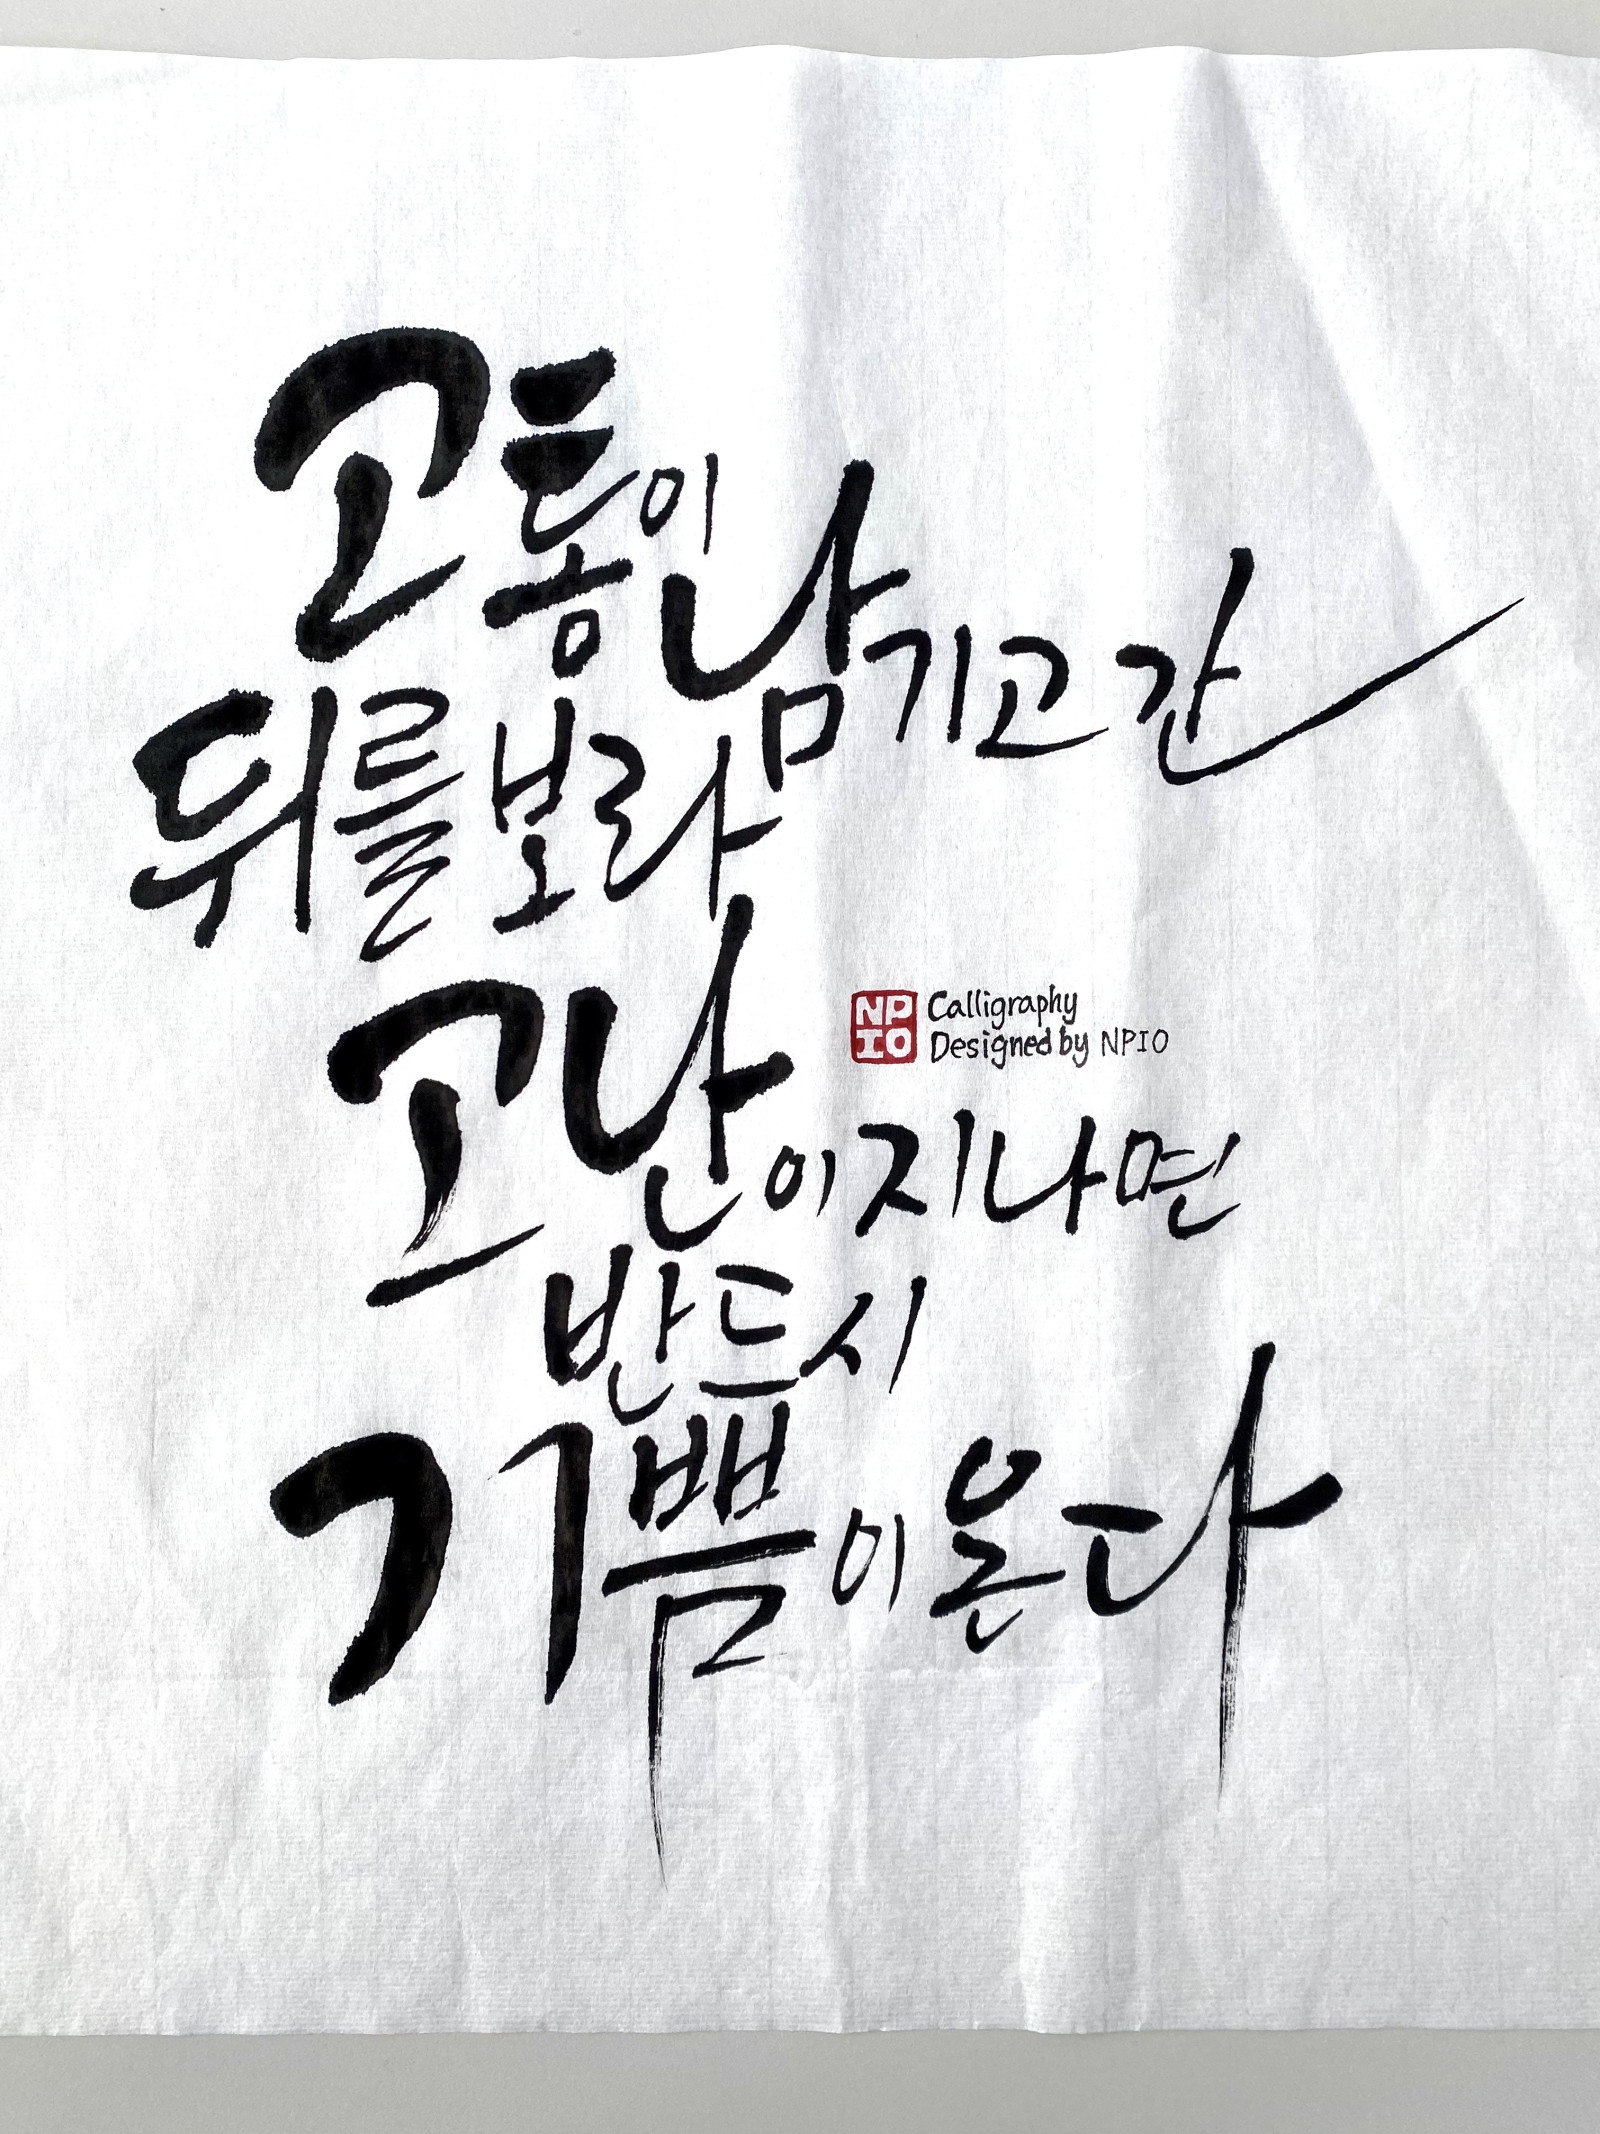 고통이 남기고 간
뒤를 보라
고난이 지나면
반드시
기쁨이 온다
NP
IO
Calligraphy
Designed by NPIO